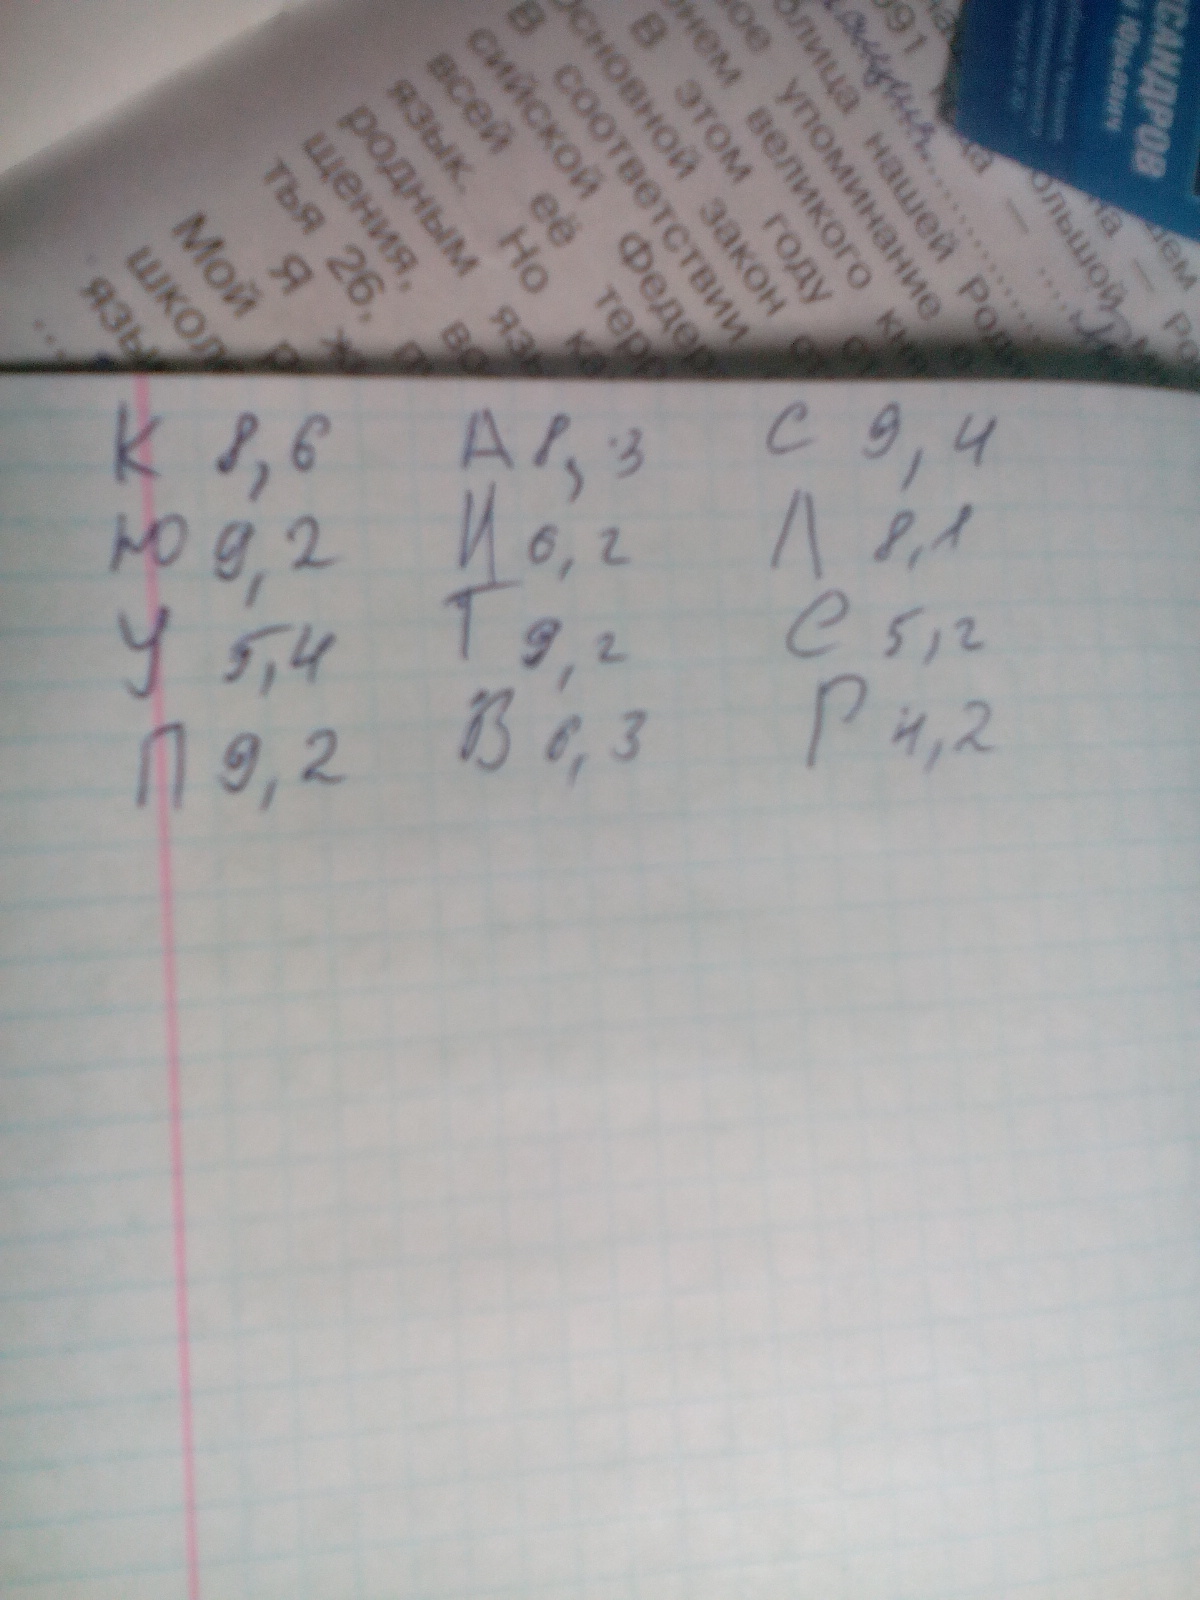 САНДРОВ
Юрьевич
991
лица нашей Роди
упоминание о
великого кня
В этом году
основной закон
В соответствии с
сийской Федер
всей её терр
язык. Но ка
родным язы
щения, во
тья 26, п
Я ж
Мой р
школ
язы
большой
К 8,6 А 8,3 С 9,4
Ю 9,2 И 6,2 Л 8,1
У 5,4 Т 9,2 С 5,2
П 9,2 В 6,3 Р 4,2